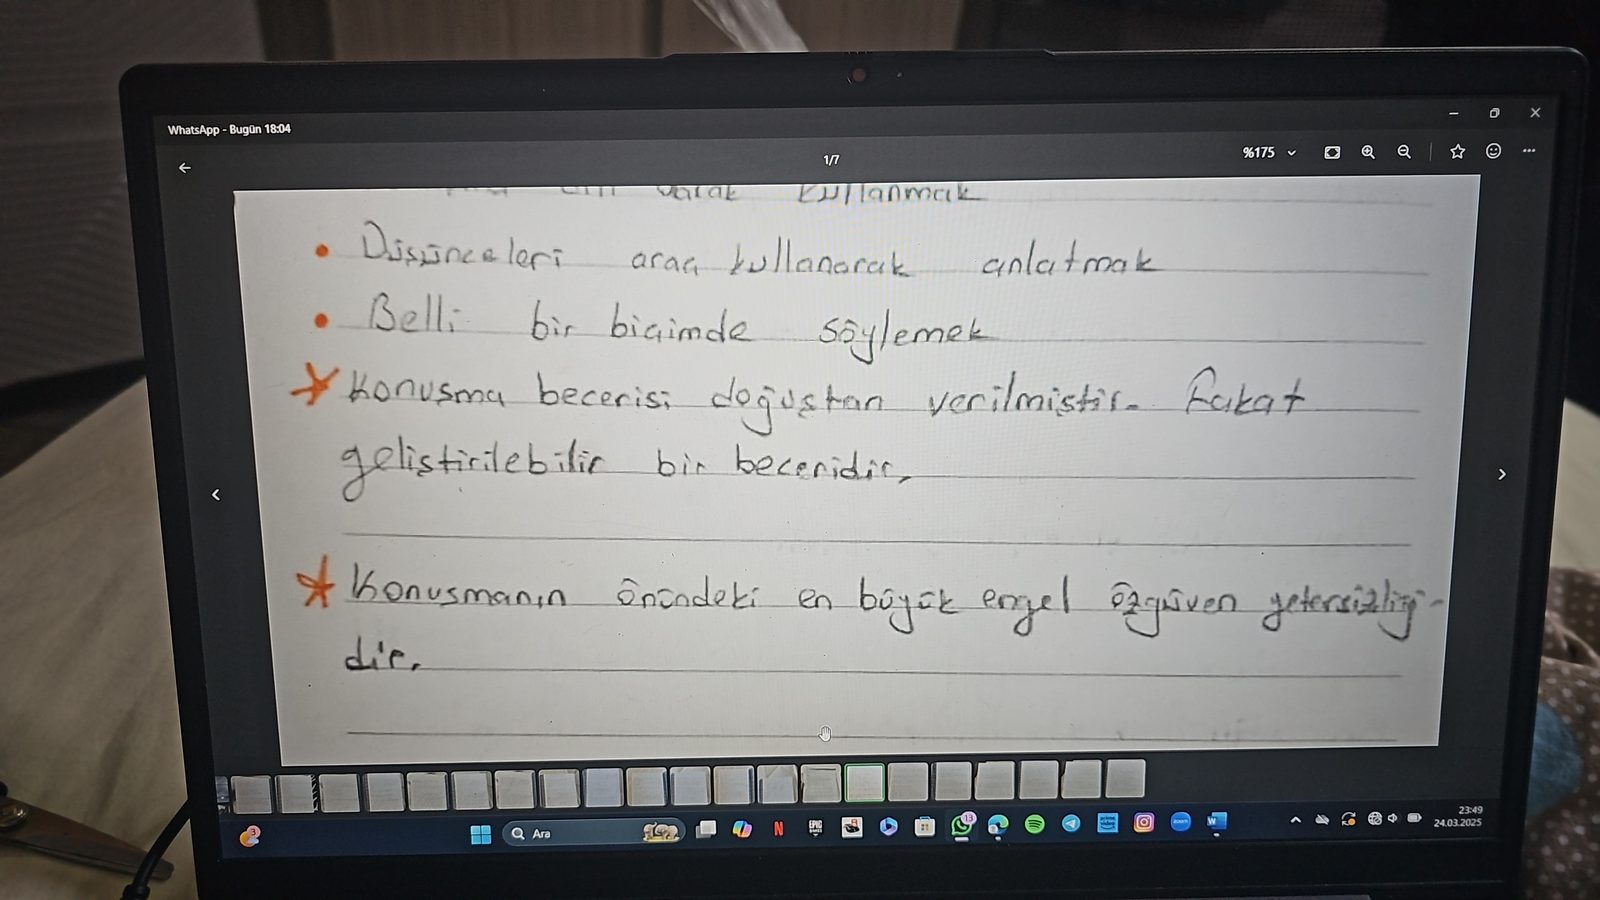 WhatsApp - Bugün 18:04
1/7
%175
kullanmak
• Düşünceleri araç kullanarak anlatmak
• Belli bir biçimde söylemek
Konuşma becerisi doğuştan verilmiştir. Fakat
geliştirilebilir bir beceridir.
Konuşmanın önündeki en büyük engel özgüven yetersizliği-
dir.
3
Ara
13
23:49
24.03.2025